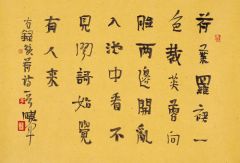 荷葉羅裙一
色裁芙蓉向
臉兩邊開亂
入池中看不
見聞歌始覺
有人來